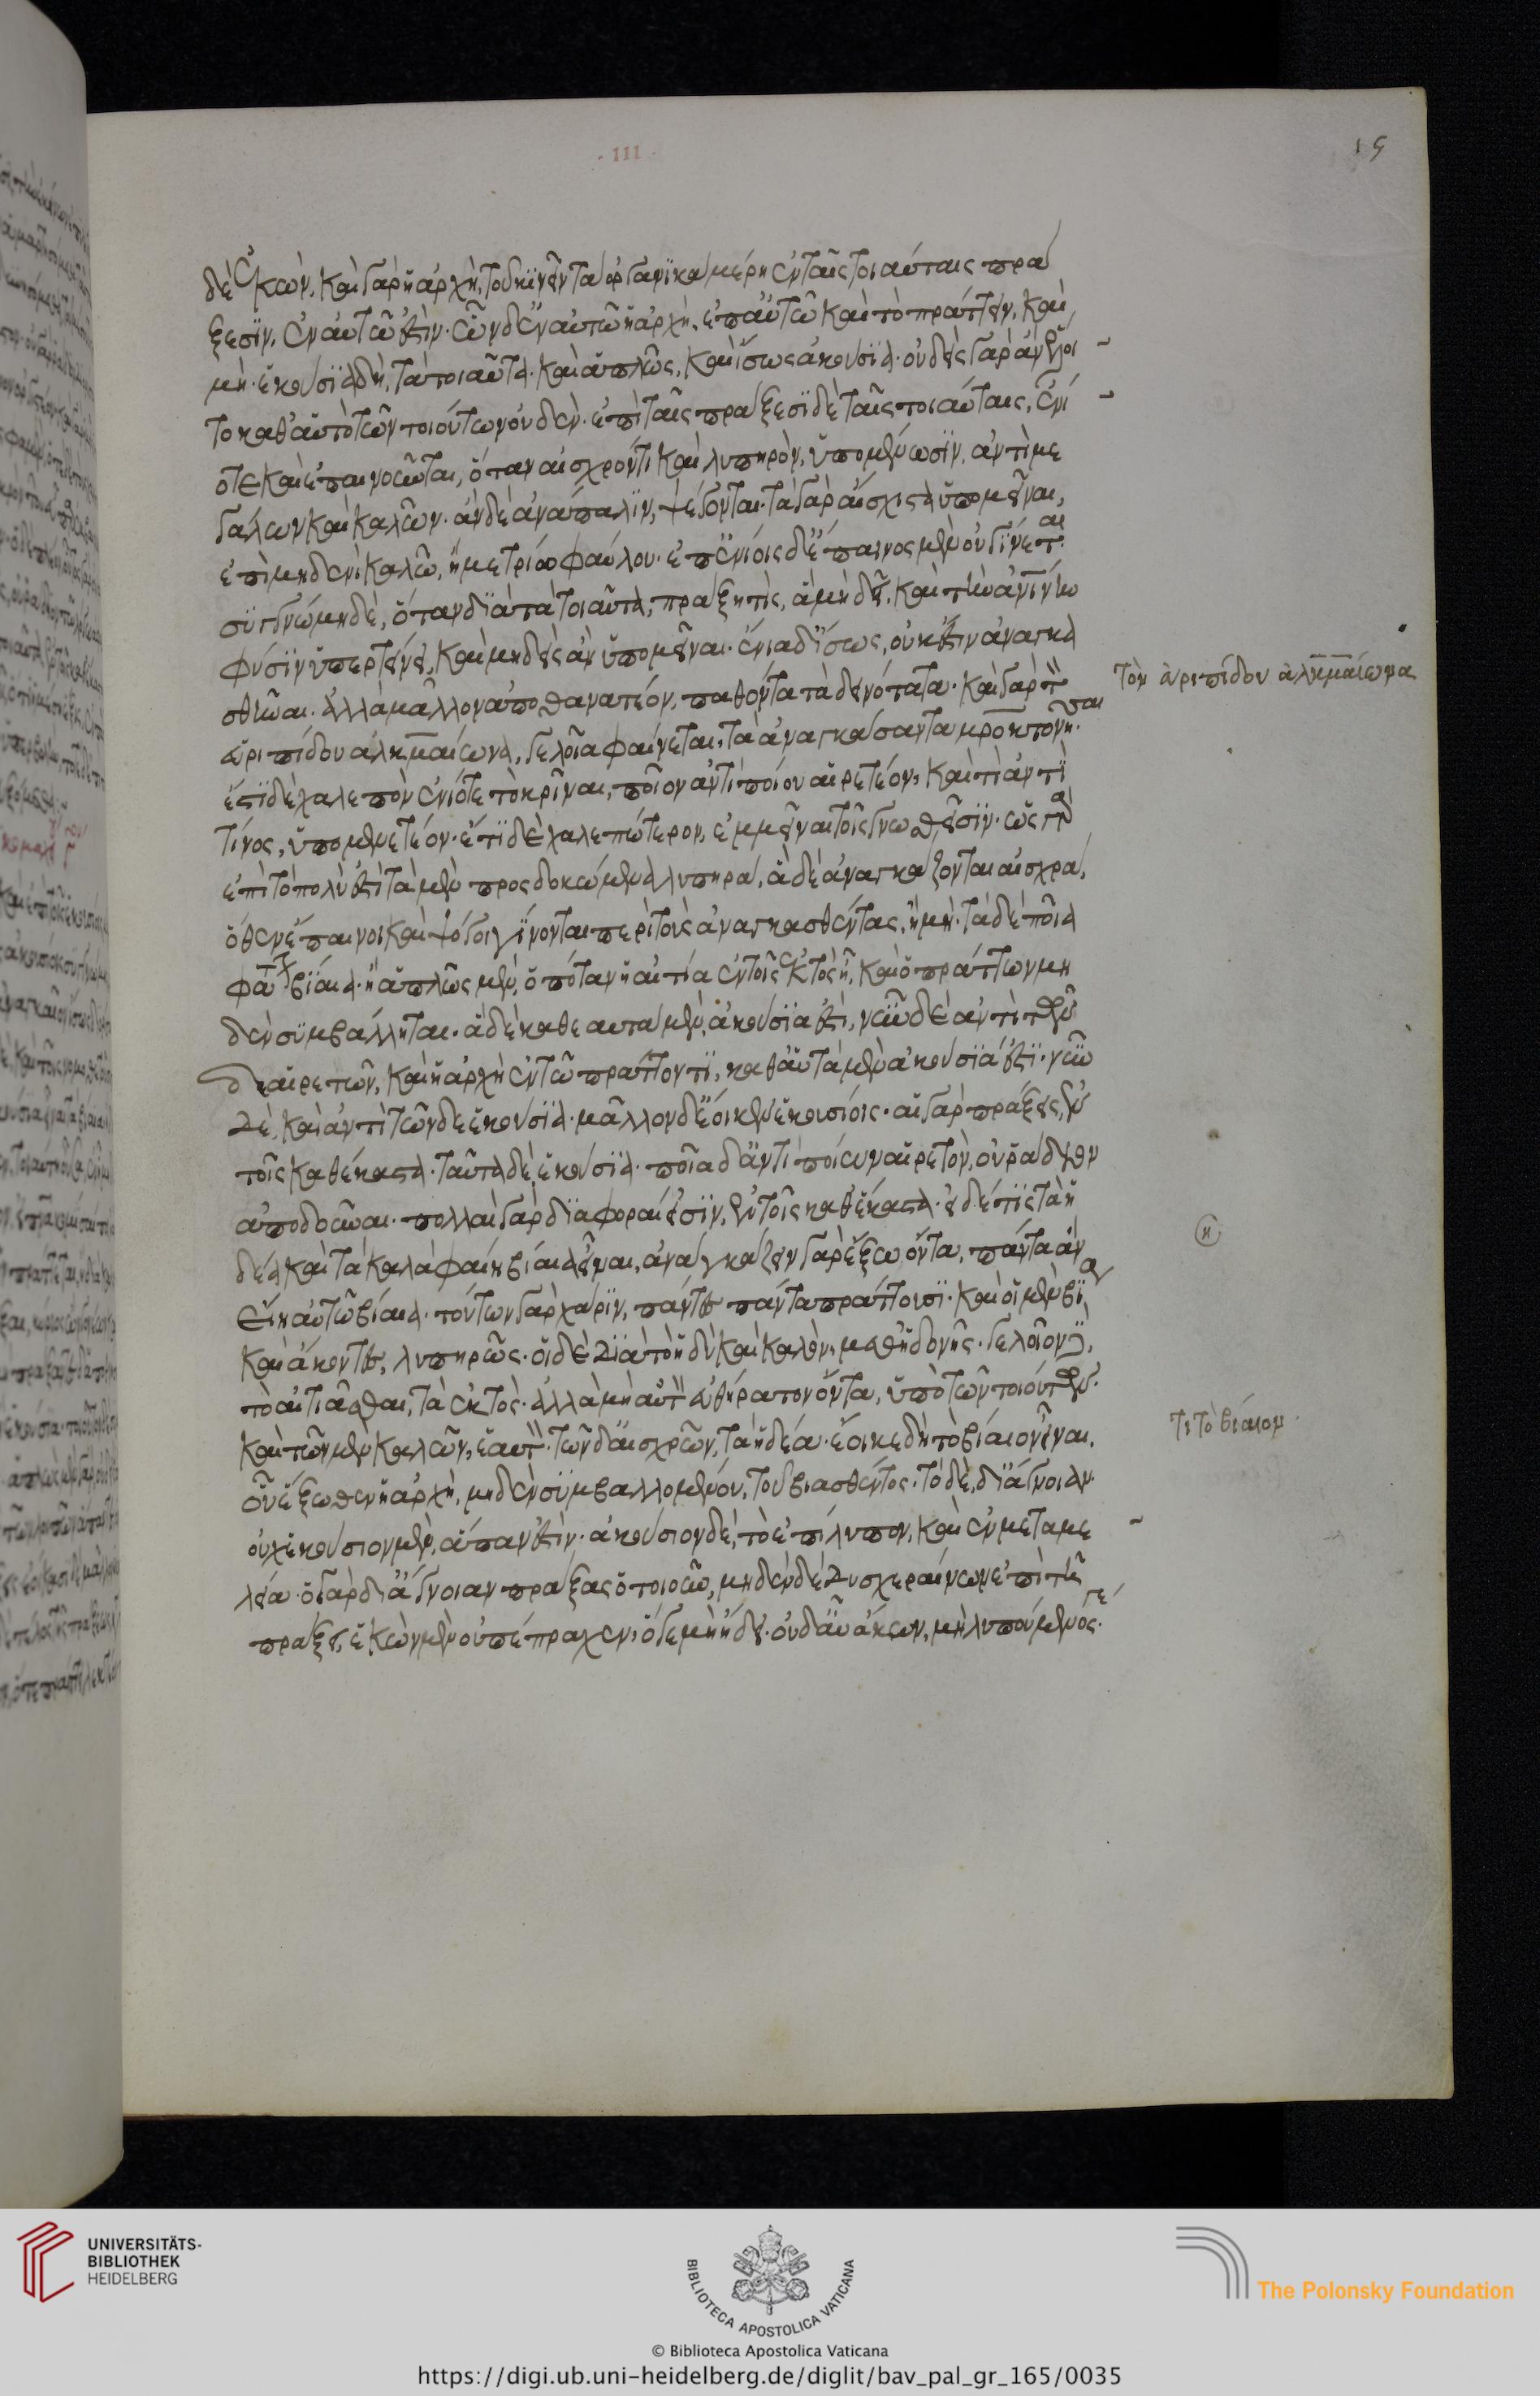 ·111·
15
δὲ ἑκών. καὶ γὰρ ἡ ἀρχὴ, τοῦ κινεῖν τὰ ὀργανικὰ μέρη ἐν ταῖς τοιαύταις πρά
ξεσιν, ἐν αὐτῷ ἐστὶν. ὧν δ' ἐν αὐτῷ ἡ ἀρχὴ, ἐπ' αὐτῷ καὶ τὸ πράττειν, καὶ
μή. ἑκούσια δὴ, τὰ τοιαῦτα. καὶ ἁπλῶς, καὶ ἴσως ἀκούσια. οὐδεὶς γὰρ ἂν ἕλοι
το καθ' αὑτὸ τῶν τοιούτων οὐδέν. ἐπὶ ταῖς πράξεσι δὲ ταῖς τοιαύταις, ἐνί
οτε καὶ ἐπαινοῦνται, ὅταν αἰσχρόν τι καὶ λυπηρὸν, ὑπομένωσιν, ἀντὶ με
γάλων καὶ καλῶν. ἂν δὲ ἀνάπαλιν, ψέγονται. τὰ γὰρ αἴσχιστα ὑπομεῖναι,
ἐπὶ μηδενὶ καλῷ, ἢ μετρίῳ φαύλου. ἐπ' ἐνίοις δ' ἔπαινος μὲν οὐ γίνεται
συγγνώμη δὲ, ὅταν διὰ τὰ τοιαῦτα, πράξῃ τὶς, ἃ μὴ δεῖ. καὶ τὴν ἀνίνην
φύσιν ὑπερτείνει, καὶ μηδεὶς ἂν ὑπομεῖναι. ἔνια δ' ἴσως, οὐκ ἔστιν ἀναγκα
σθῆναι. ἀλλὰ μᾶλλον ἀποθανατέον, παθόντα τὰ δεινότατα. καὶ γὰρ τὸν
εὐριπίδου ἀλκμαίωνα, γελοῖα φαίνεται, τὰ ἀναγκάσαντα μροκτονῆσαι.
ἔστι δὲ χαλεπὸν ἐνίοτε τὸ κρῖναι, ποῖον ἀντὶ ποίου αἱρετέον, καὶ τὶ ἀντὶ
τίνος, ὑπομενετέον. ἔτι δὲ χαλεπώτερον, ἐμμεῖναι τοῖς γνωσθεῖσιν. ὡς γὰρ
ἐπὶ τὸ πολὺ ἐστὶ τὰ μὲν προσδοκώμενα λυπηρὰ, ἃ δὲ ἀναγκάζονται αἰσχρὰ,
ὅθεν ἔπαινοι καὶ ψόγοι γίνονται περὶ τοὺς ἀναγκασθέντας, ἢ μή. τὰ δὲ ποῖα
φατέον βίαια. ἢ ἁπλῶς μὲν, ὁπόταν ἡ αἰτία ἐν τοῖς ἐκτὸς ᾖ, καὶ ὁ πράττων μη
δὲν συμβάλληται. ἃ δὲ καθ' ἑαυτὰ μὲν, ἀκούσια ἐστὶ, νῦν δὲ ἀντὶ τῶνδε
αἱρετῶν, καὶ ἡ ἀρχὴ ἐν τῷ πράττοντι, καθ' αὑτὰ μὲν ἀκούσια ἐστι. νῦν
δὲ, καὶ ἀντὶ τῶνδε ἑκούσια. μᾶλλον δ' ἔοικεν ἑκουσίοις. αἱ γὰρ πράξεις, ἐν
τοῖς καθέκαστα. ταῦτα δὲ, ἑκούσια. ποῖα δ' ἀντὶ ποίων αἱρετὸν, οὐ ῥάδιον
ἀποδοῦναι. πολλαὶ γὰρ διαφοραί εἰσιν, ἐν τοῖς καθέκαστα. εἰ δέ τις τὰ ἡ
δέα καὶ τὰ καλὰ φαίη βίαια εἶναι, ἀναγκάζειν γὰρ ἔξω ὄντα, πάντα ἂν
εἴη αὐτῷ βίαια. τούτων γὰρ χάριν, πάντες πάντα πράττουσι. καὶ οἱ μὲν βίᾳ
καὶ ἄκοντες, λυπηρῶς. οἱ δὲ διὰ τὸ ἡδὺ καὶ καλὸν, μεθ' ἡδονῆς. γελοῖον δὲ,
τὸ αἰτιᾶσθαι, τὰ ἐκτὸς. ἀλλὰ μὴ αὑτὸν εὐθήρατον ὄντα, ὑπὸ τῶν τοιούτων.
καὶ τῶν μὲν καλῶν, ἑαυτὸν. τῶν δ' αἰσχρῶν, τὰ ἡδέα. ἔοικε δὴ τὸ βίαιον εἶναι,
οὗ ἔξωθεν ἡ ἀρχὴ, μηδὲν συμβαλλομένου, τοῦ βιασθέντος. τὸ δὲ, δι' ἄγνοιαν.
οὐχ ἑκούσιον μὲν, ἅπαν ἐστὶν. ἀκούσιον δὲ, τὸ ἐπίλυπον, καὶ ἐν μεταμε
λείᾳ. ὁ γὰρ δι' ἄγνοιαν πράξας ὁτιοῦν, μηδὲν δὲ δυσχεραίνων ἐπὶ τῇ
πράξει, ἑκὼν μὲν οὐ πέπραχεν, ὅ γε μὴ ᾔδει. οὐδ' αὖ ἄκων, μὴ λυπούμενός γε.
τὸν εὐριπίδου ἀλκμαίωνα
τί τὸ βίαιον
UNIVERSITÄTS-
BIBLIOTHEK
HEIDELBERG
BIBLIOTECA APOSTOLICA VATICANA
The Polonsky Foundation
© Biblioteca Apostolica Vaticana
https://digi.ub.uni-heidelberg.de/diglit/bav_pal_gr_165/0035